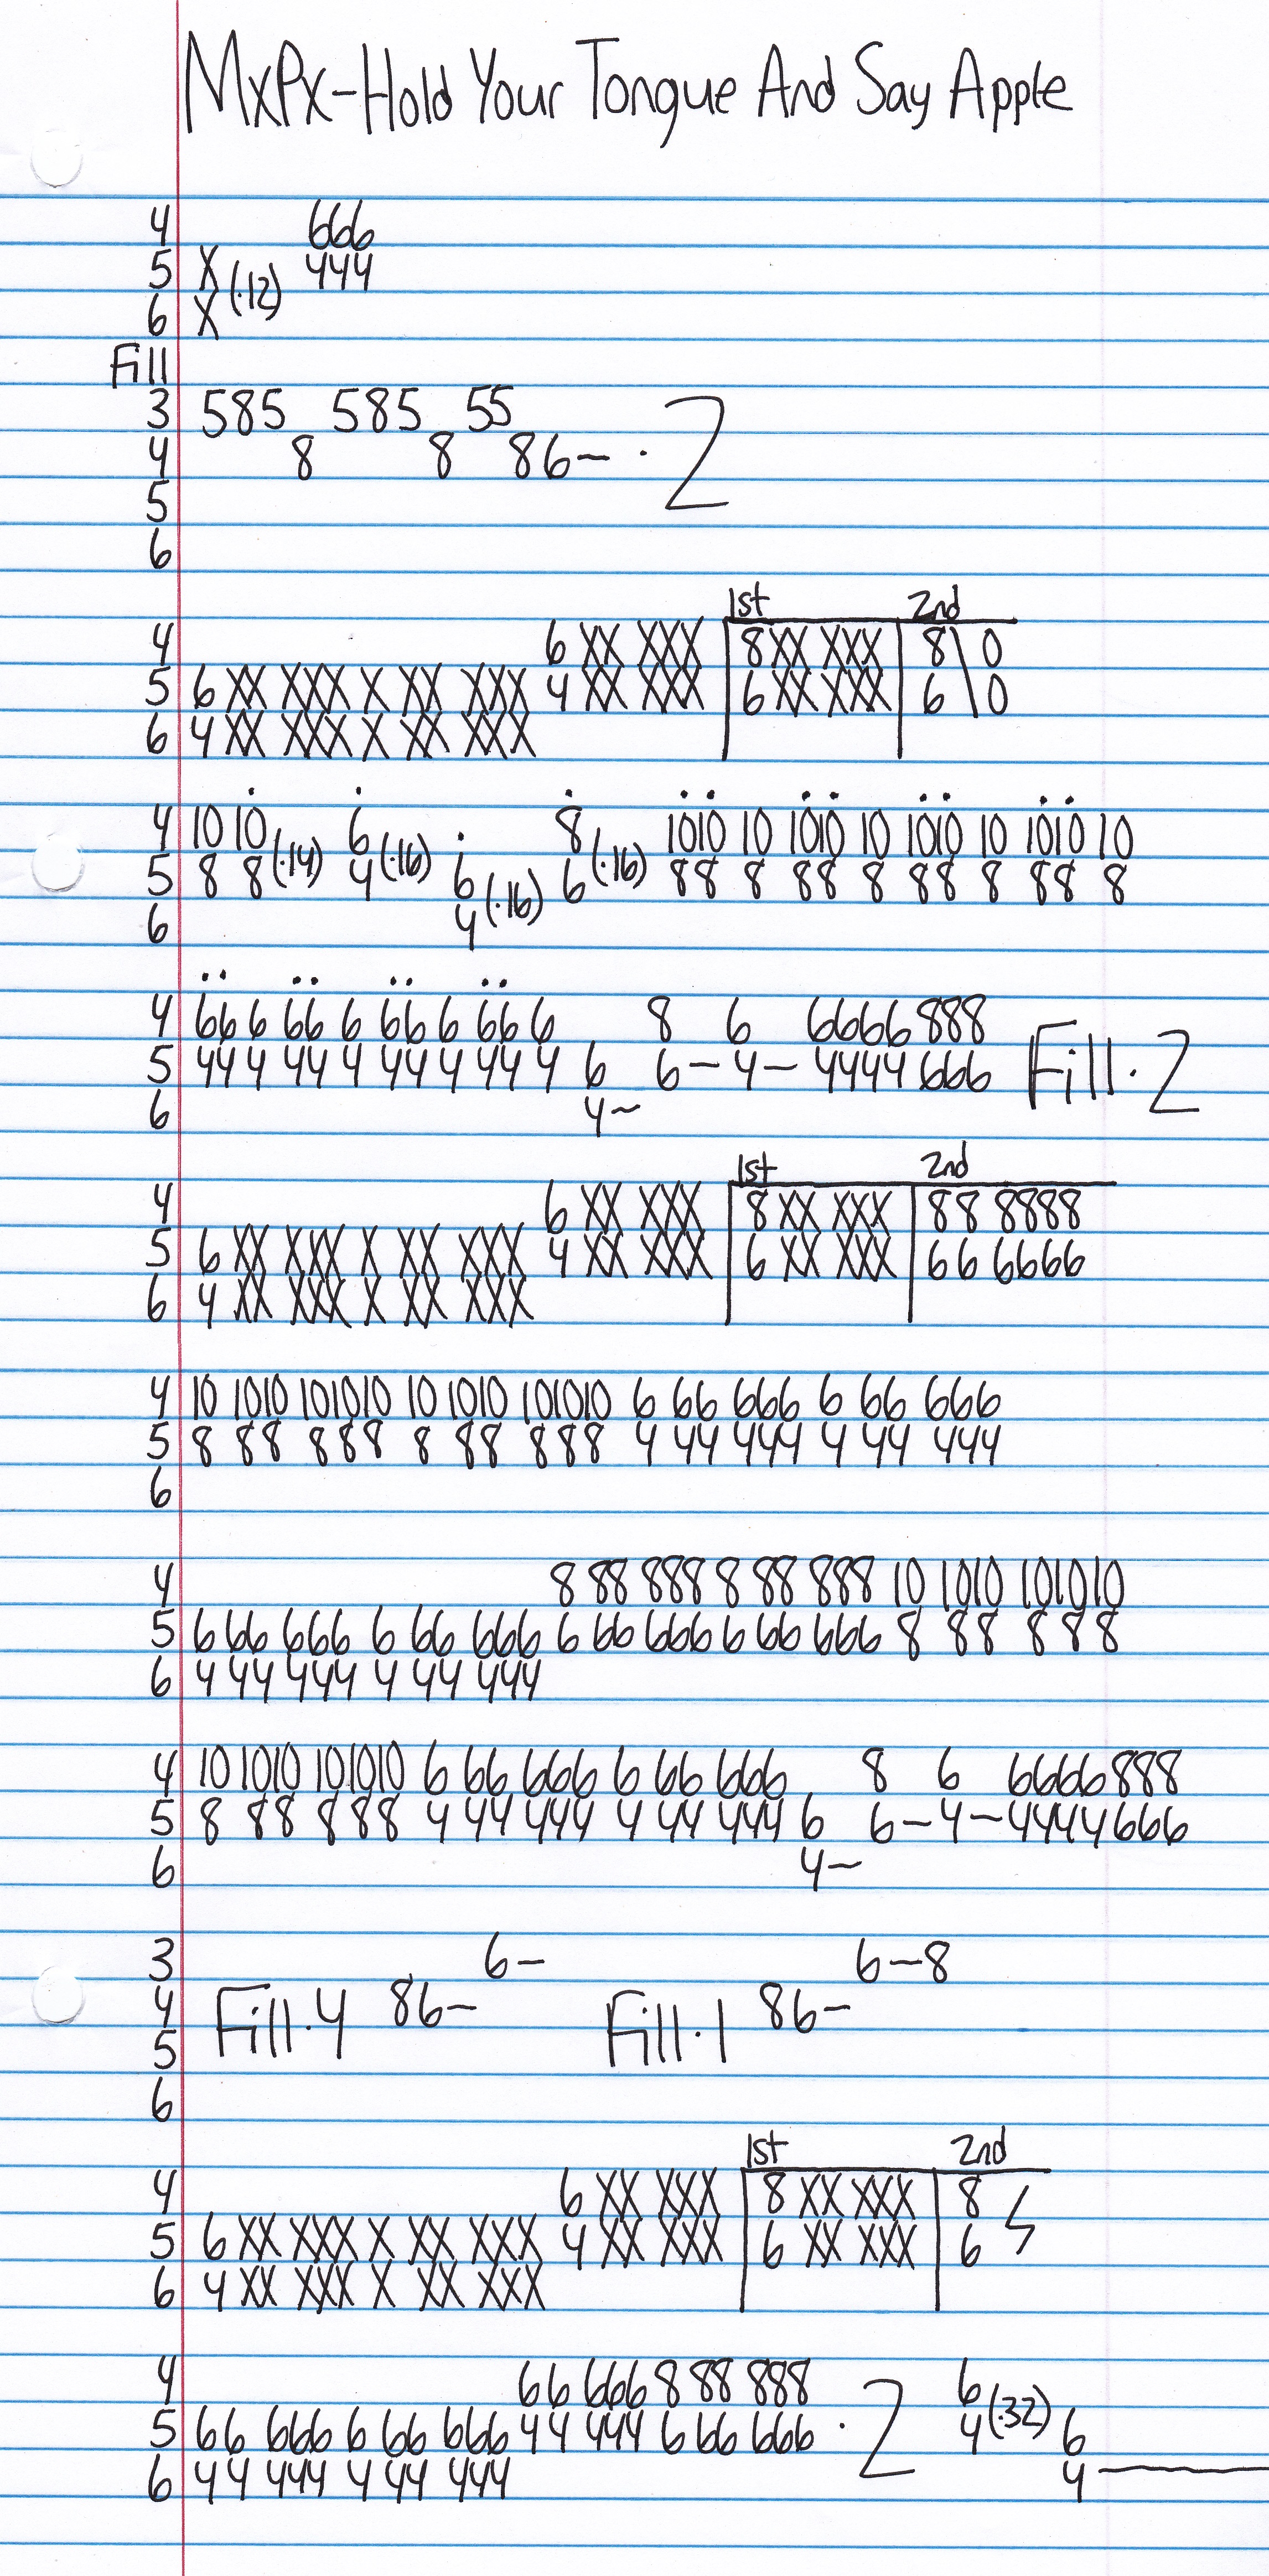 MxPx-Hold Your Tongue And Say Apple
4 666
5 X (·12) 444
6 X
Fill
3 585 585 55
4 8 8 86~ · 2
5
6
1st 2nd
4 6 XX XXX 8 XX XXX 8 \ 0
5 6 XX XXX X XX XXX 4 XX XXX 6 XX XXX 6 \ 0
6 4 XX XXX X XX XXX
4 10 10 6 8 1010 10 1010 10 1010 10 1010 10
5 8 8 (·14) 4 (·16) 6 6 (·16) 88 8 88 8 88 8 88 8
6 4 (·16)
4 66 6 66 6 66 6 66 6 8 6 6666 888
5 44 4 44 4 44 4 44 4 6 6 - 4 - 4444 666 Fill · 2
6 4~
1st 2nd
4 6 XX XXX 8 XX XXX 88 8888
5 6 XX XXX X XX XXX 4 XX XXX 6 XX XXX 66 6666
6 4 XX XXX X XX XXX
4 10 1010 101010 10 1010 101010 6 66 666 6 66 666
5 8 88 888 8 88 888 4 44 444 4 44 444
6
4 8 88 888 8 88 888 10 1010 101010
5 6 66 666 6 66 666 6 66 666 6 66 666 8 88 888
6 4 44 444 4 44 444
4 10 1010 101010 6 66 666 6 66 666 8 6 6666 888
5 8 88 888 4 44 444 4 44 444 6 6 - 4 - 4444 666
6 4~
3 6- 6-8
4 Fill · 4 86~ Fill · 1 86~
5
6
1st 2nd
4 6 XX XXX 8 XX XXX 8
5 6 XX XXX X XX XXX 4 XX XXX 6 XX XXX 6
6 4 XX XXX X XX XXX
4 66 666 8 88 888 6
5 66 666 6 66 666 44 444 6 66 666 · 2 4 (·32) 6
6 44 444 4 44 444 4